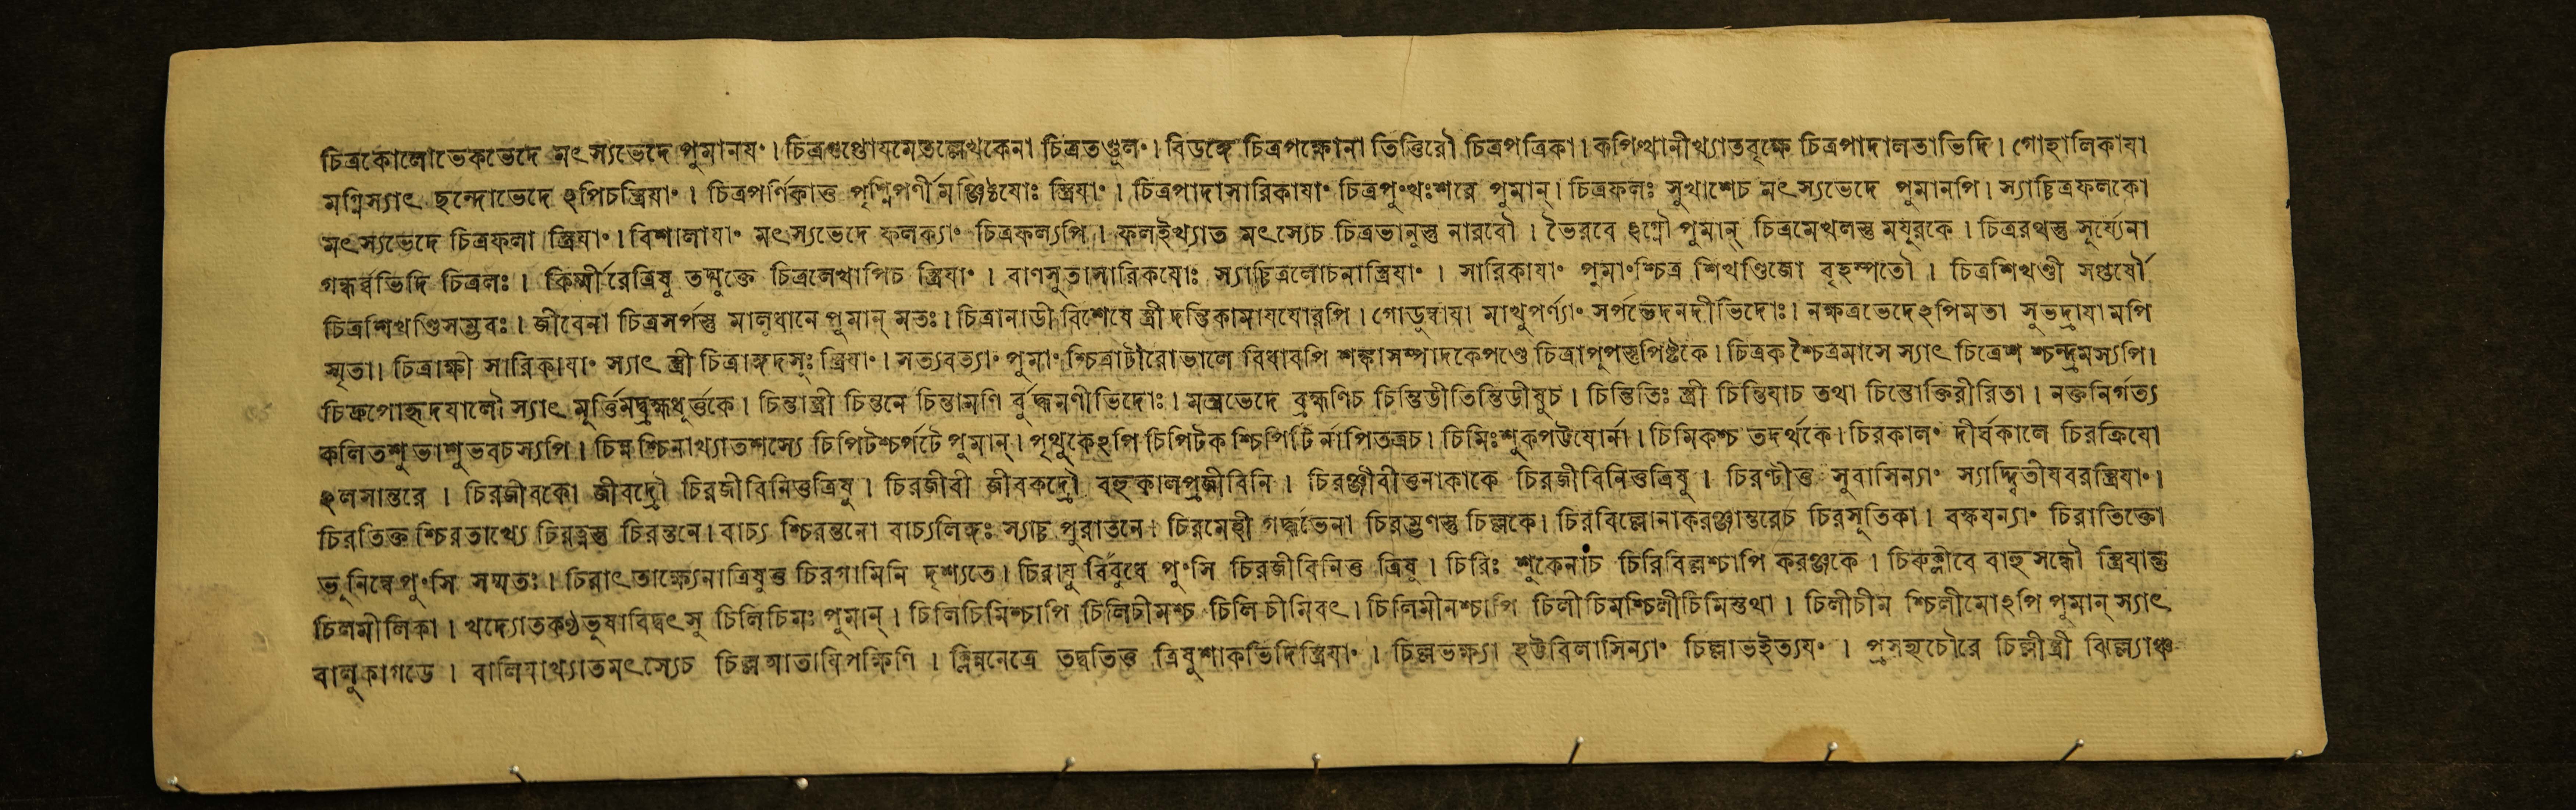 চিত্রকোলোভেকভেদে মৎস্যভেদে পুমানয়ং। চিত্রগুপ্তোযমেতল্লেখকেনা চিত্রতণ্ডুলং। বিডঙ্গে চিত্রপক্ষোনা তিত্তিরৌ চিত্রপত্রিকা। কপিত্থানীখ্যাতবৃক্ষে চিত্রপাদালতাভিদি। গোহালিকাযা
মগ্নিস্যাৎ ছন্দোভেদে ঽপিচস্ত্রিযাং। চিত্রপর্ণিকাত্ত পৃশ্নিপর্ণীমঞ্জিষ্ঠযোঃ স্ত্রিযাং। চিত্রপাদাসারিকাযাং চিত্রপুংখঃশরে পুমান্। চিত্রফলঃ সুখাশেচ মৎস্যভেদে পুমানপি। স্যাচ্চিত্রফলকো
মৎস্যভেদে চিত্রফলা স্ত্রিযাং। বিশালাযাং মৎস্যভেদে ফলক্যাং চিত্রফল্যপি। ফলইখ্যাত মৎস্যেচ চিত্রভানুস্তু নারবৌ। ভৈরবে ঽগ্নৌ পুমান্ চিত্রমেখলস্তু মযূরকে। চিত্ররথস্তু সূর্য্যেনা
গন্ধর্ব্বভিদি চিত্রলঃ। কির্ম্মীরেত্রিষু তদ্যুক্তে চিত্রলেখাপিচ স্ত্রিযাং। বাণসুতাসারিকযোঃ স্যাচ্চিত্রলোচনাস্ত্রিযাং। সারিকাযাং পুমাংশ্চিত্র শিখণ্ডিজো বৃহস্পতৌ। চিত্রশিখণ্ডী সপ্তর্ষৌ
চিত্রশিখণ্ডিসম্ভবঃ। জীবেনা চিত্রসর্পস্তু মালুধানে পুমান্ মতঃ। চিত্রানাডী বিশেষে স্ত্রী দন্তিকামাযযোরপি। গোডুম্বাযা মাখুপর্ণ্যাং সর্পভেদনদীভিদোঃ। নক্ষত্রভেদেঽপিমতা সুভদ্রাযামপি
স্মৃতা। চিত্রাক্ষী সারিকাযাং স্যাৎ স্ত্রী চিত্রাঙ্গদসূঃ স্ত্রিযাং। সত্যবত্যাং পুমাংশ্চিত্রাটীরোভালে বিধাবপি শঙ্কাসম্পাদকেপণ্ডে চিত্রাপূপস্তুপিষ্টকে। চিত্রক শ্চৈত্রমাসে স্যাৎ চিত্রেশ শ্চন্দ্রমস্যপি।
স্যাৎ মূর্ত্তিমদ্ব্রহ্মধূর্ত্তকে। চিন্তাস্ত্রী চিন্তনে চিন্তামণি র্বুদ্ধমণীভিদোঃ। মন্ত্রভেদে ব্রহ্মণিচ চিন্তিডীতিন্তিডীষুচ। চিন্তিতিঃ স্ত্রী চিন্তিযাচ তথা চিন্তোক্তিরীরিতা। নক্তনির্গত্য
কলিতশুভাশুভবচস্যপি। চিন্নশ্চিনাখ্যাতশস্যে চিপিটশ্চর্পটে পুমান্। পৃথুকেঽপি চিপিটক শ্চিপিটি র্নাপিতত্রচ। চিমিঃশুকপট্টযোর্না। চিমিকশ্চ তদর্থকে। চিরকালং দীর্ঘকালে চিরক্রিযো
ঽলসান্তরে। চিরজীবকো জীবদ্রৌ চিরজীবিনিত্তত্রিষু। চিরজীবী জীবকদ্রৌ বহুকালপ্রজীবিনি। চিরঞ্জীবীত্তনাকাকে চিরজীবিনিত্তত্রিষু। চিরণ্টীত্ত সুবাসিন্যাং স্যাদ্দ্বিতীযবরস্ত্রিযাং।
চিরতিক্ত শ্চিরতাখ্যে চিরত্নস্তু চিরন্তনে। বাচ্য শ্চিরন্তনো বাচ্যলিঙ্গঃ স্যাচ্চ পুরাতনে। চিরমেহী গর্দ্ধভেনা চিরম্ভণস্তু চিল্লকে। চিরবিল্লোনাকরঞ্জান্তরেচ চিরসূতিকা। বষ্কযন্যাং চিরাতিক্তো
ভূনিম্বেপুংসি সম্মতঃ। চিরাৎতার্ক্ষ্যেনাত্রিষুত্ত চিরগামিনি দৃশ্যতে। চিরাযু র্বিবুধে পুংসি চিরজীবিনিত্ত ত্রিষু। চিরিঃ শুকেনাচ চিরিবিল্লশ্চাপি করঞ্জকে। চিবুক্লীবে বাহুসন্ধৌ স্ত্রিযান্তু
চিলমীলিকা। খদ্যোতকণ্ঠভূষাবিদ্যুৎসু চিলিচিমঃ পুমান্। চিলিচিমিশ্চাপি চিলিচীমশ্চ চিলিচীমিবৎ। চিলিমীনশ্চাপি চিলীচিমশ্চিলীচিমিস্তথা। চিলীচীম শ্চিলীমোঽপি পুমান্ স্যাৎ
বালুকাগডে। বালিযাখ্যাতমৎস্যেচ চিল্লআতাযিপক্ষিণি। ক্লিন্ননেত্রে তদ্বতিত্ত ত্রিষুশাকভিদিস্ত্রিযাং। চিল্লভক্ষ্যা হট্টবিলাসিন্যাং চিল্লাভইত্যযং। প্রসহ্যচৌরে চিল্লীস্ত্রী ঝিল্ল্যাঞ্চ